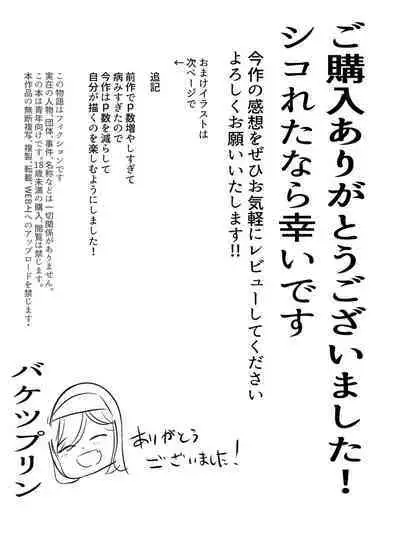 ご購入ありがとうございました！
シコれたなら幸いです
今作の感想をぜひお気軽にレビューしてください
よろしくお願いいたします!!
おまけイラストは
次ページで
←
追記
前作でP数増やしすぎて
病みすぎたので
今作はP数を減らして
自分が描くのを楽しむようにしました！
この物語はフィクションです
実在の人物、団体、事件、名称などは一切関係がありません。
この本は青年向けです。18歳未満の購入、閲覧は禁じます。
本作品の無断複写、複製、転載、WEB上へのアップロードを禁じます・
ありがとう
ございました！
バケツプリン